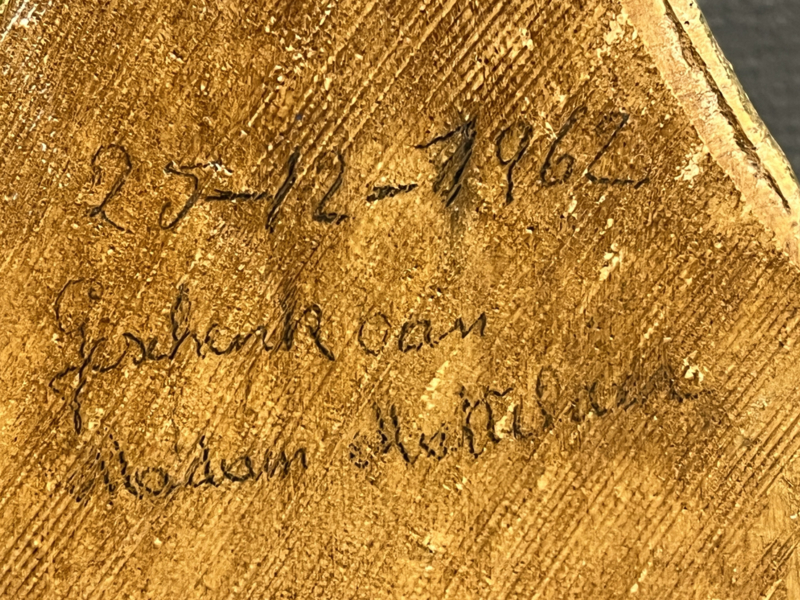 25-12-1962
Geschenk van
Madam